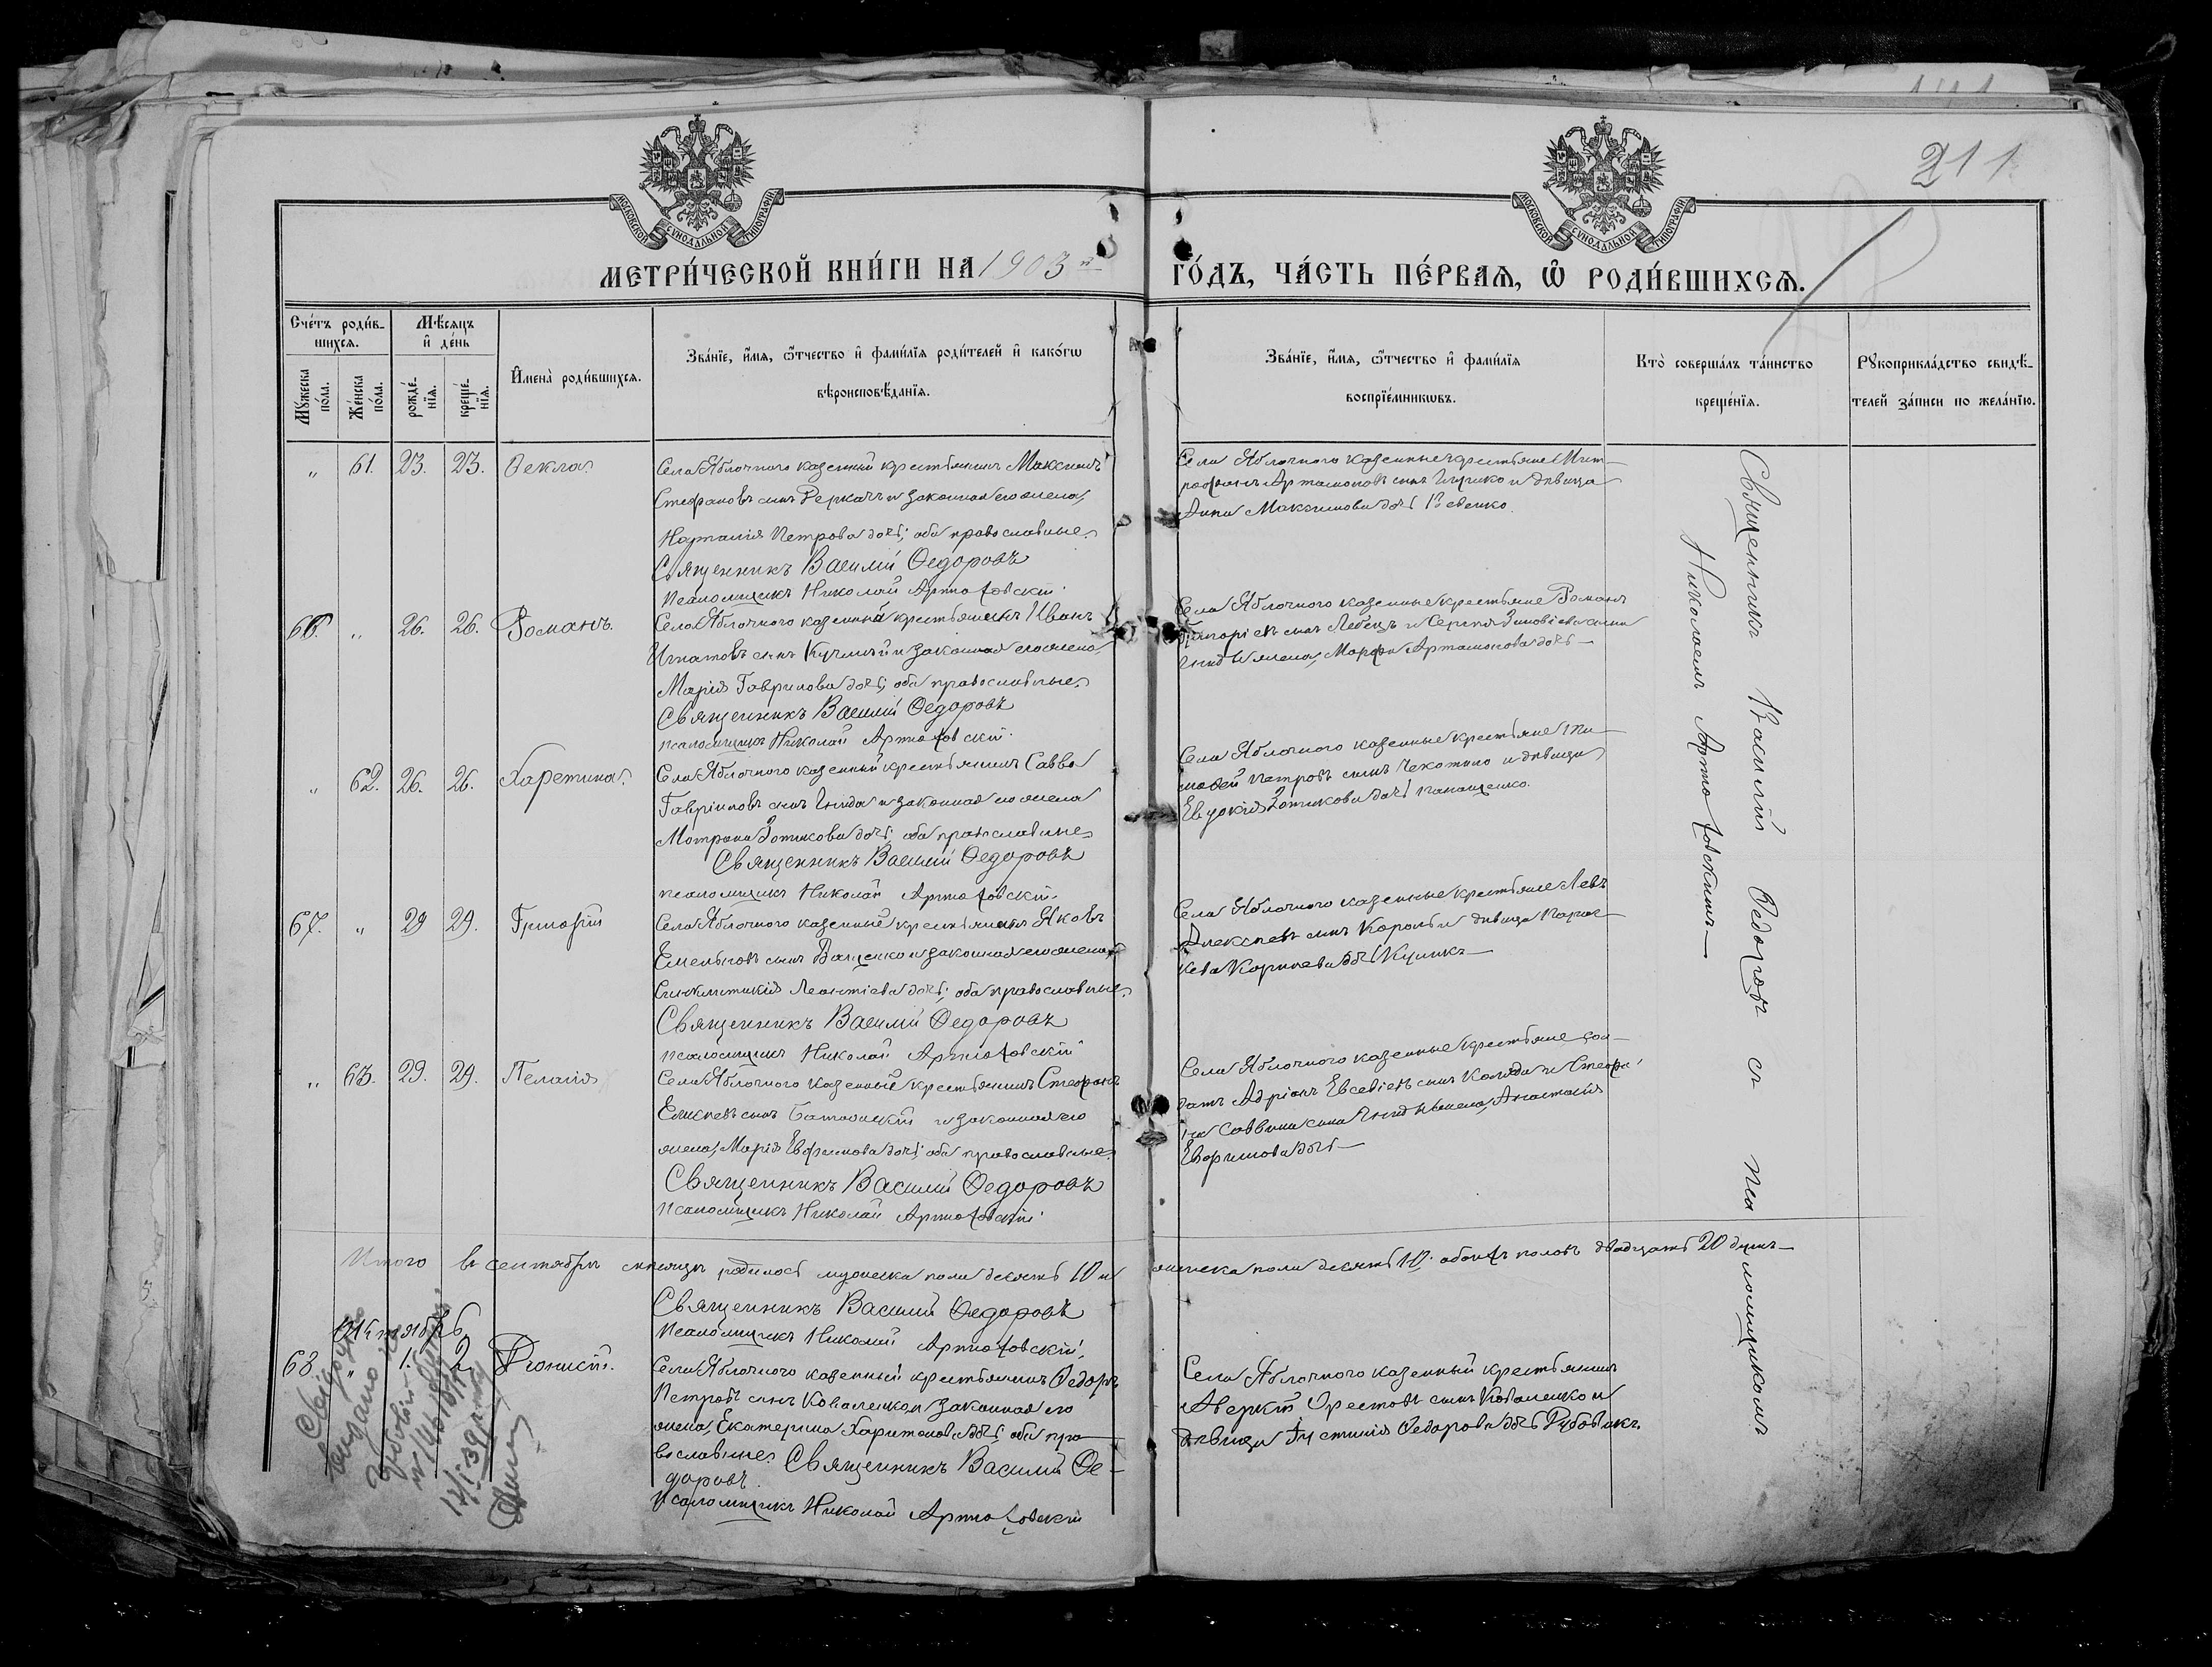 211
МОСКОВСКОЙ СѴНОДАЛЬНОЙ ТИПОГРАФІИ
МОСКОВСКОЙ СѴНОДАЛЬНОЙ ТИПОГРАФІИ
МЕТРИ́ЧЕСКОЙ КНИ́ГИ НА 1903 й ГО́ДЪ, ЧА́СТЬ ПЕ́РВАЯ, Ѡ РОДИ́ВШИХСѦ.
Сче́тъ роди́в-
шихсѧ.
Мꙋ́жеска по́ла.
Же́нска по́ла.
Мѣ́сѧцъ и҆ де́нь
рожде́-
нїѧ.
креще́-
нїѧ.
И҆мена̀ роди́вшихсѧ.
Зва́нїе, и҆́мѧ, ѻ҆́тчество и҆ фами́лїѧ роди́телей и҆ како́гѡ
вѣроисповѣ́данїѧ.
Зва́нїе, и҆́мѧ, ѻ҆́тчество и҆ фами́лїѧ
воспрїе́мникѡвъ.
Кто̀ соверша́лъ та́инство
креще́нїѧ.
Рꙋкоприкла́дство свидѣ́-
телей за́писи по жела́нїю.
„ 61. 23. 23. Ѳекла
Села Яблочного казенный крестьянинъ Максимъ
Стефановъ сынъ Деркачъ и законная его жена,
Наталія Петрова дочь; оба православные.
Священникъ Василій Ѳедоровъ
Псаломщикъ Николай Артюховскій.
Села Яблочного казенные крестьяне Мит-
рофанъ Артамоновъ сынъ и дѣвица
Анна Максимова дочь
66. „ 26. 26. Романъ.
Села Яблочного казенный крестьянинъ Иванъ
Игнатовъ сынъ и законная его жена,
Марія Гаврилова дочь; оба православные.
Священникъ Василій Ѳедоровъ
псаломщикъ Николай Артюховскій.
Села Яблочного казенные крестьяне Романъ
Григоріевъ сынъ Лебедь и Сергія Зиновіева сына
Гниды жена, Марфа Артамонова дочь
„ 62. 26. 26. Харетина.
Села Яблочного казенный крестьянинъ Савва
Гавріиловъ сынъ Гнида и законная его жена
Матрона Зотикова дочь; оба православные
Священникъ Василій Ѳедоровъ
псаломщикъ Николай Артюховскій.
Села Яблочного казенные крестьяне Ти-
моѳей Петровъ сынъ и дѣвица
Евдокія Зотикова дочь Панащенко.
67. „ 29 29. Григорій
Села Яблочного казенный крестьянинъ Яковъ
Емельяновъ сынъ Ващенко и законная его жена
Синклитикія Леонтіева дочь; оба православные.
Священникъ Василій Ѳедоровъ
псаломщикъ Николай Артюховскій
Села Яблочного казенные крестьяне Левъ
Алексѣевъ сынъ Король и дѣвица Парас-
кева Корнѣева дочь Куликъ
„ 63. 29. 29. Пелагія
Села Яблочного казенный крестьянинъ Стефанъ
Елисѣевъ сынъ и законная его
жена, Марія Евфимова дочь; оба православные.
Священникъ Василій Ѳедоровъ
Псаломщикъ Николай Артюховскій
Села Яблочного казенные крестьяне сол-
датъ Адріанъ Евсевіевъ сынъ Коляда и Стефа-
на Саввина сына Гниды жена, Анастасія
Евфимова дочь
Итого въ сентябрѣ мѣсяцѣ родилось мужеска пола десять 10 и женска пола десять 10. обоихъ половъ двадцать 20 душъ
Священникъ Василій Ѳедоровъ
Псаломщикъ Николай Артюховскій.
Октябрь
68. „ 1. 2. Діонисій.
Села Яблочного казенный крестьянинъ Ѳедоръ
Петровъ сынъ Коваленко и законная его
жена, Екатерина Харитонова дочь; оба пра-
вославные. Священникъ Василій Ѳе-
доровъ.
Псаломщикъ Николай Артюховскій
Села Яблочного казенный крестьянинъ
Аверкій Орестовъ сынъ Коваленко и
дѣвица Іустинія Ѳедорова дочь
Священникъ Василій Ѳедоровъ съ псаломщикомъ
Николаемъ Артюховскимъ